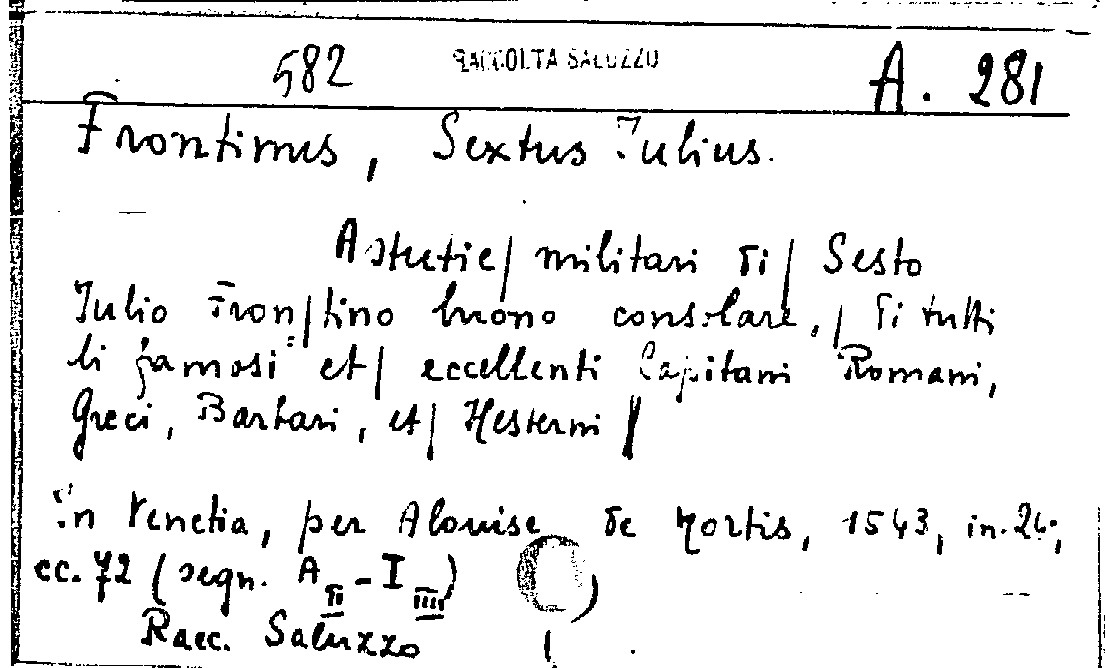 582 RACCOLTA SALUZZO A. 281
Frontinus, Sextus Iulius.
Astutie/ militari di/ Sesto
Iulio Fron/tino huono consolare,/ Di tutti
li famosi et/ eccellenti Capitani Romani,
Greci, Barbari, et/ Hesterni //
In Venetia, per Alouise de Tortis, 1543, in.24°,
cc. 72 (segn. A II - I IIII)
Racc. Saluzzo